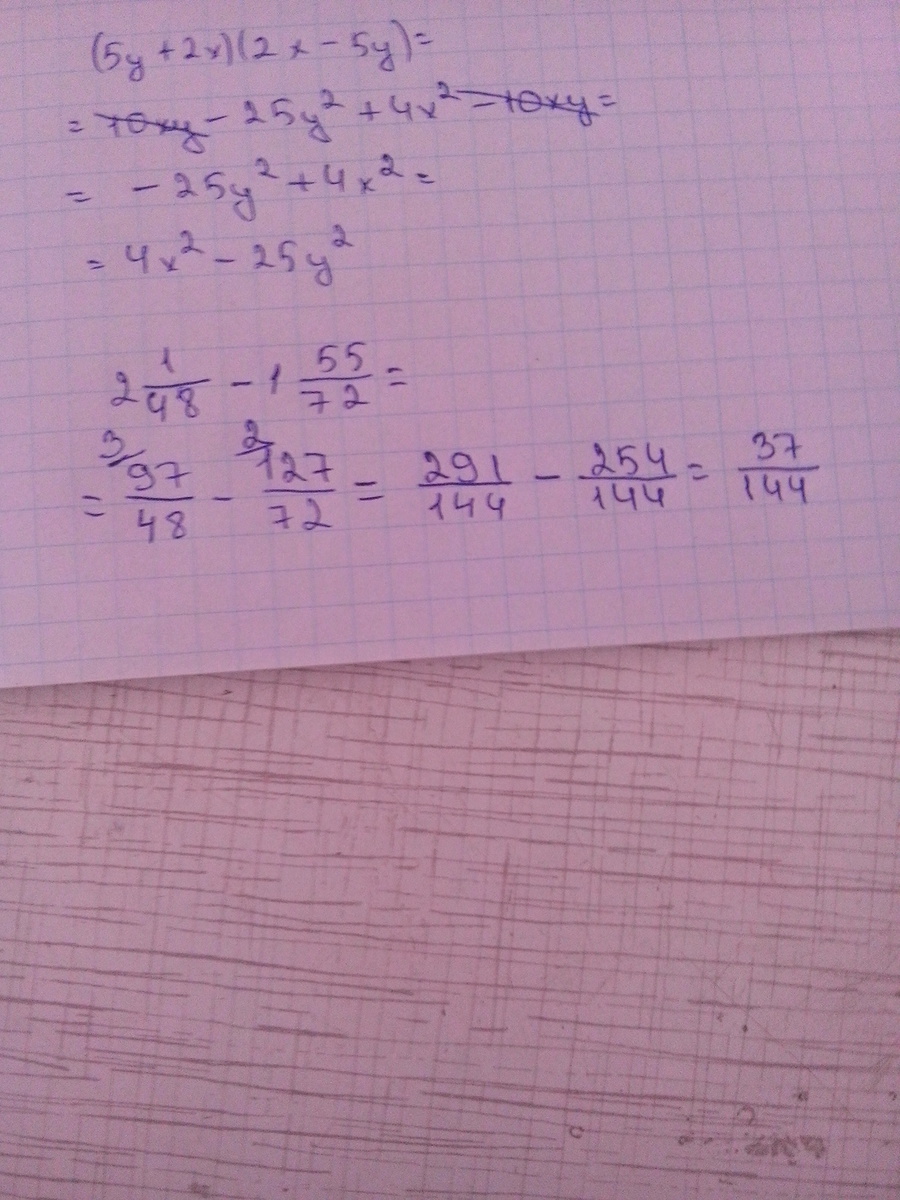 (5y + 2x)(2x - 5y) =
= 10xy - 25y² + 4x² - 10xy =
= - 25y² + 4x² =
= 4x² - 25y²
2 1/48 - 1 55/72 =
= ³⁄ 97/48 - ²⁄ 127/72 = 291/144 - 254/144 = 37/144